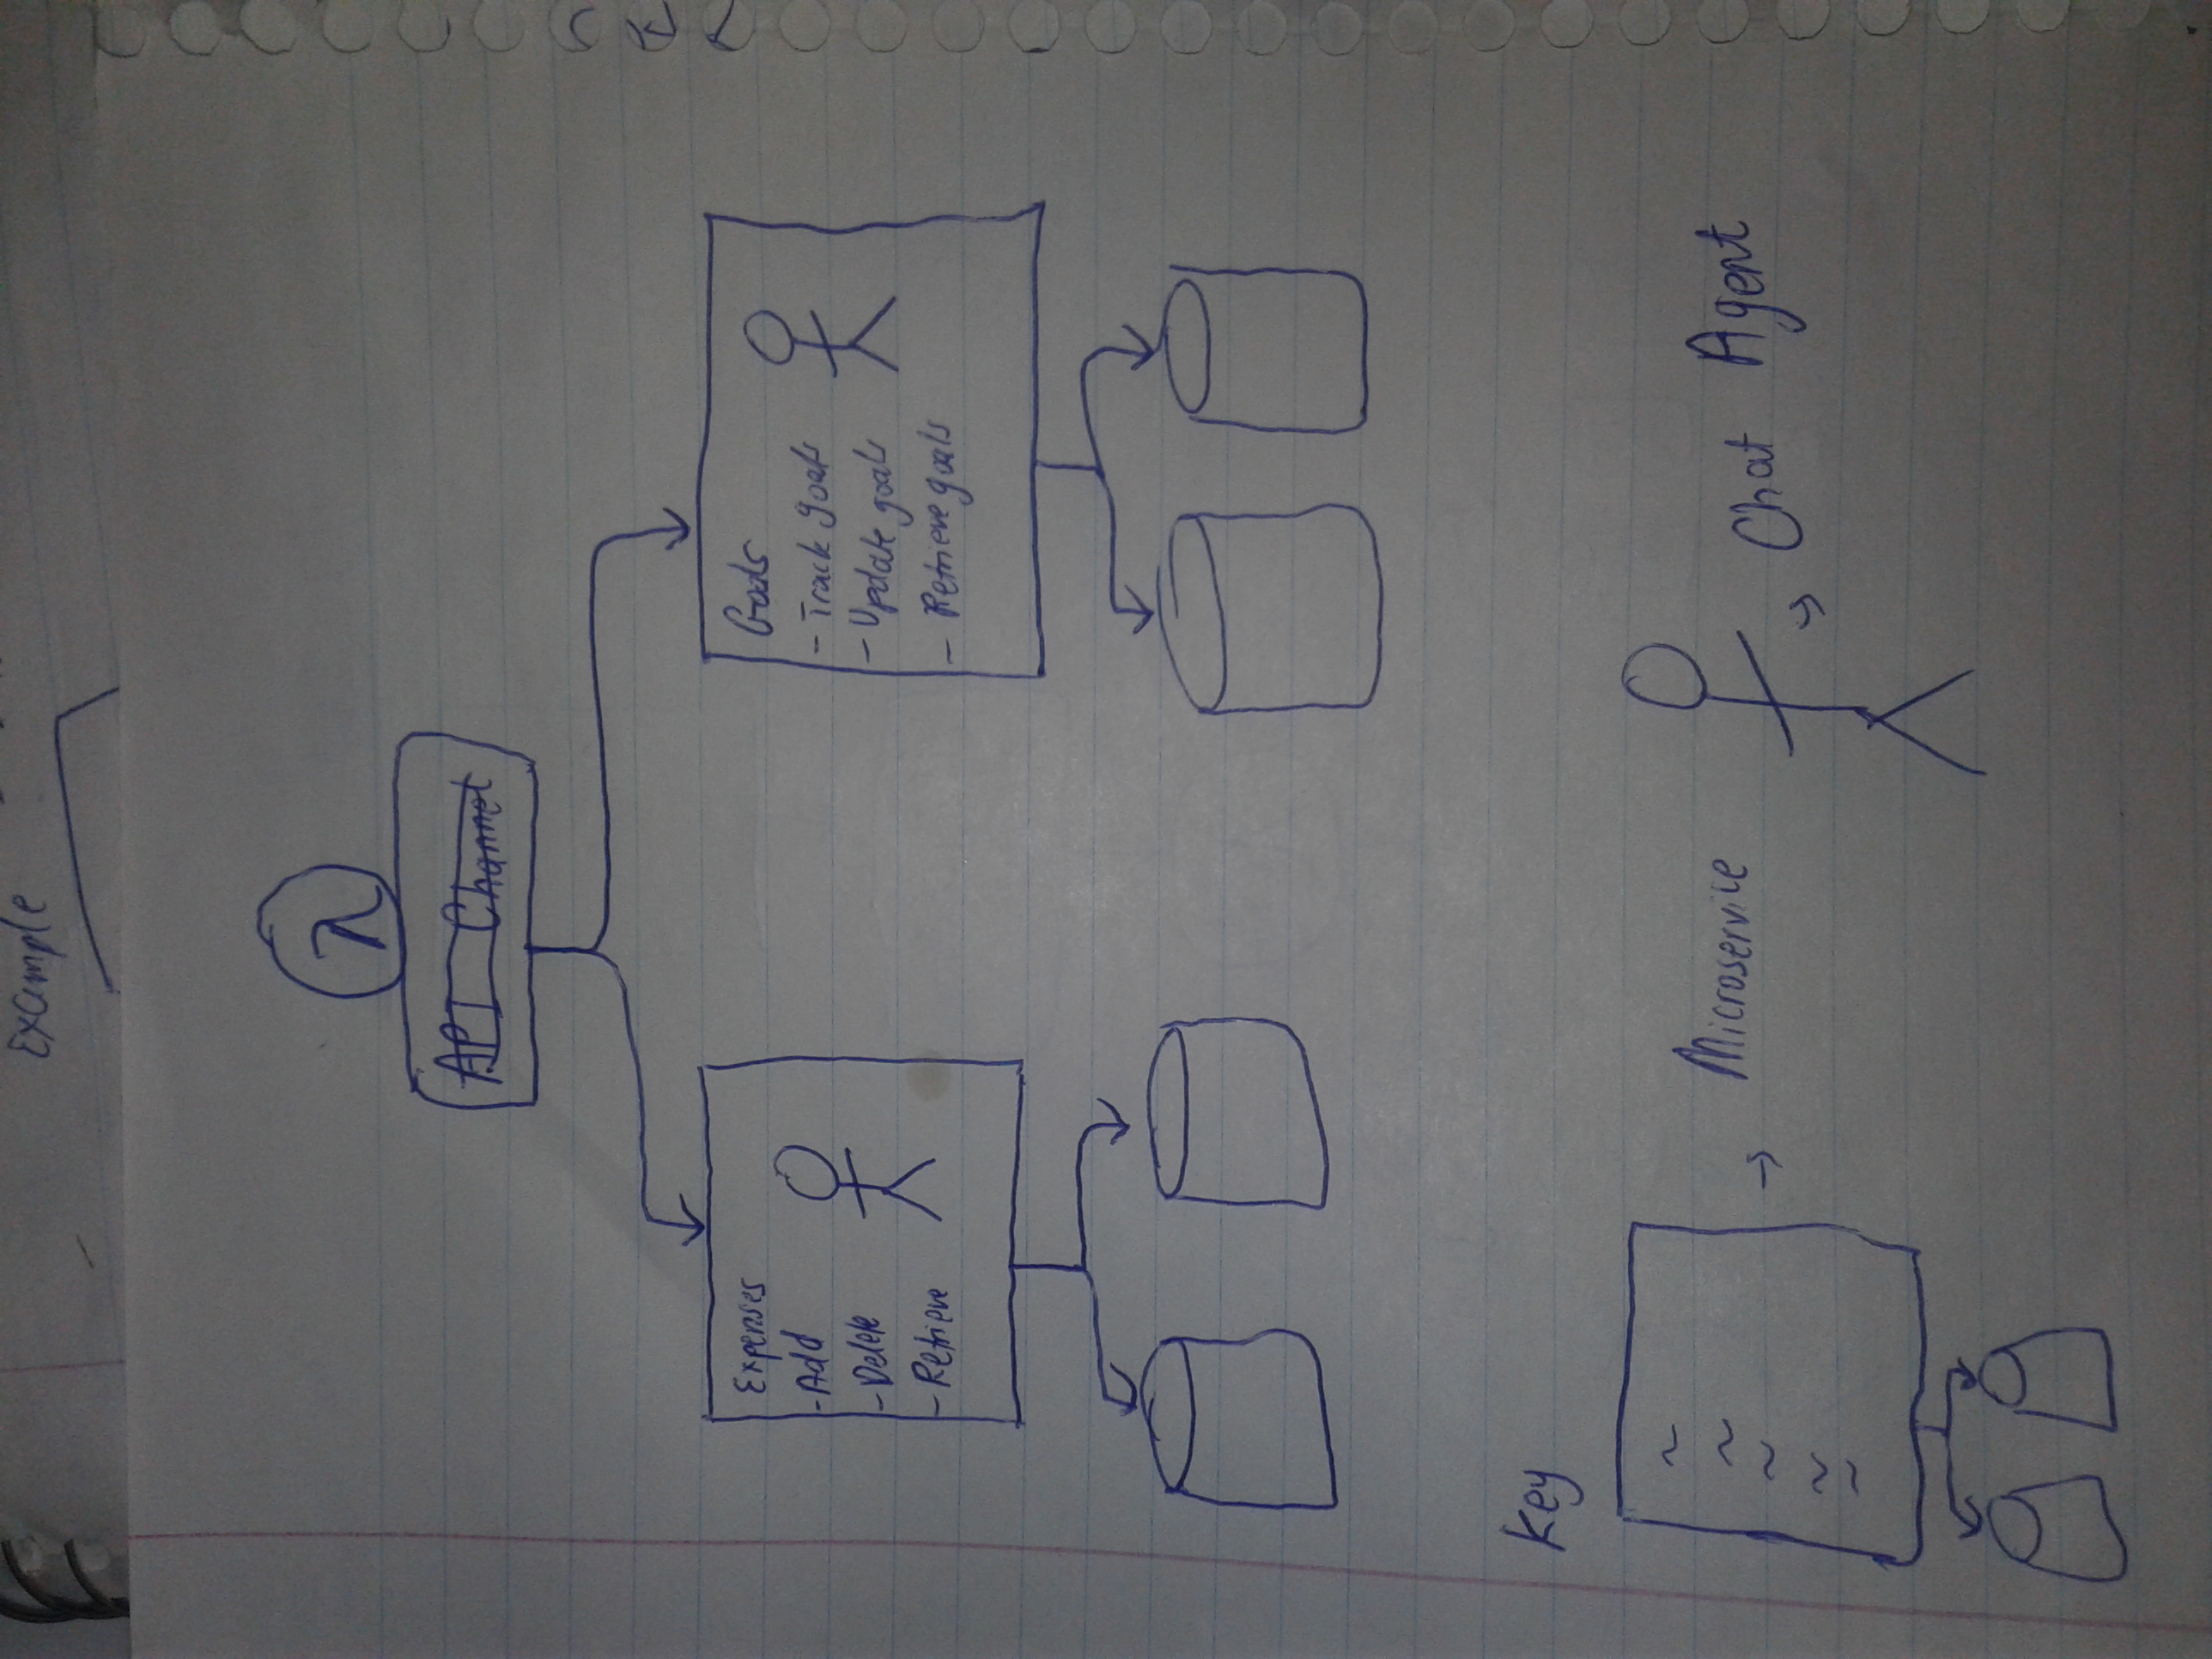 Example
λ
API Channel
Expenses
- Add
- Delete
- Retrieve
Goals
- Track goals
- Update goals
- Retrieve goals
Key
→ Microservice
→ Chat Agent